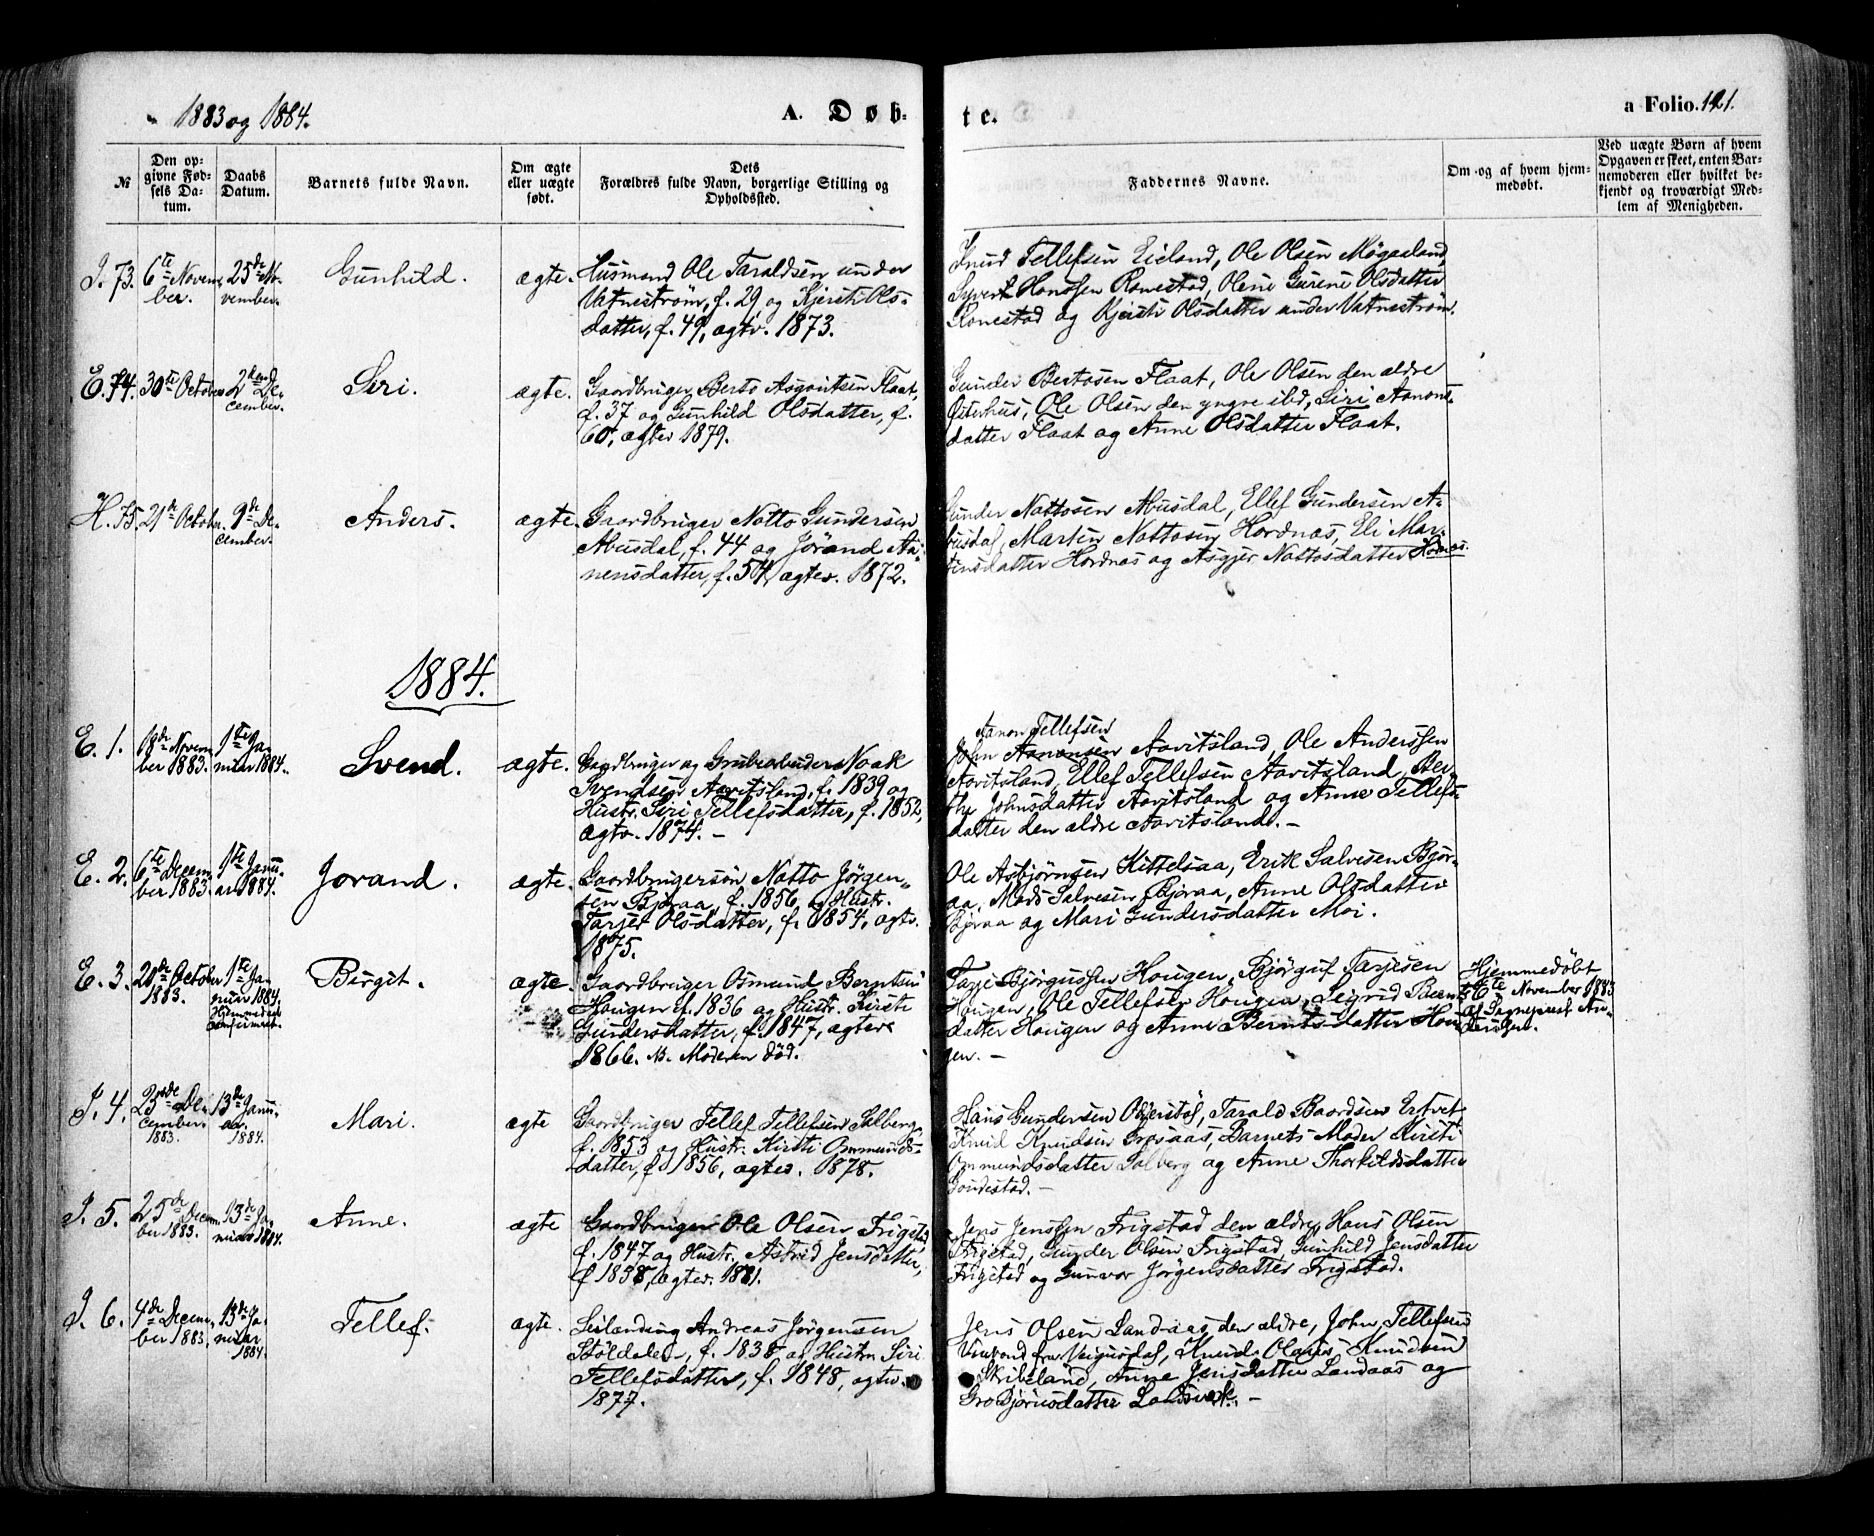 1883 og 1884.
A. Døb-
te.
a Folio. 121.
№
Den op-
givne Fød-
sels Da-
tum.
Daabs
Datum.
Barnets fulde Navn.
Om ægte
eller uægte
født.
Dets
Forældres fulde Navn, borgerlige Stilling og
Opholdssted.
Faddernes Navne.
Om og af hvem hjem-
medøbt.
Ved uægte Børn af hvem
Opgaven er skeet, enten Bar-
nemoderen eller hvilket be-
kjendt og troværdigt Med-
lem af Menigheden.
I. 73.
6te Novem-
ber.
25de No-
vember.
Gunhild.
ægte.
Husmand Ole Taraldsen under
Vatnestrøm, f. 29, og Kjersti Ols-
datter, f. 49, ægtv. 1873.
Knud Tellefsen Eieland, Ole Olsen Møgaeland,
Syvert Hanssen Ronestad, Olene Gurine Olsdatter
Ronestad og Kjersti Olsdatter under Vatnestrøm.
E. 74.
30te October
2den De-
cember.
Seri.
ægte.
Gaardbruger Berto Asgautsen Flaat,
f. 37 og Gunhild Olsdatter, f.
60, ægtev 1879.
Gunder Bertosen Flaat, Ole Olsen den ældre
Øiterhus, Ole Olsen den yngre ibd, Siri Aanons-
datter Flaat og Anne Olsdatter Flaat.
H. 75.
21de Octobr.
9de De-
cember.
Anders.
ægte.
Gaardbruger Notto Gundersen
Abusdal, f. 44 og Jørand Aa-
nensdatter, f. 54, ægtev. 1872.
Gunder Nottosen Abusdal, Ellef Gundersen A-
busdal, Martin Nottosen Hordnæs, Eli Mar-
tinsdatter Hordnæs og Asgjer Nottosdatter Hornæs.
1884.
E. 1.
18de Novem-
ber 1883.
1ste Ja-
nuar 1884.
Svend.
ægte.
Gaardbruger og Grubearbeider Noak
Svendsen Aavitsland, f. 1839 og
Hustr. Siri Tellefsdatter, f. 1852,
ægtv. 1874. -
Aanon Tellefsen
John Aanonsen Aavitsland, Ole Anderssen
Aavitsland, Ellef Tellefsen Aavitsland, Ber-
the Johnsdatter Aavitsland og Anne Tellefs-
datter den ældre Aavitsland. -
E. 2.
6te Decem-
ber 1883.
1ste Janu-
ar 1884.
Jorand.
ægte.
Gaardbrugersøn Notto Jørgen-
sen Bjoraa, f. 1856, og Hustr.
Tarjer Olsdatter, f. 1854, ægtv.
1875.
Ole Asbjørnsen Kittelsaa, Erik Salvesen Bjor-
aa, Mads Salvesen Bjoraa, Anne Olsdatter
Bjoraa og Mari Gundersdatter Moi.
E. 3.
20de October
1883.
1ste Ja-
nuar 1884.
Hjemmedaab
confirmert.
Birgit.
ægte.
Gaardbruger Osmund Berntsen
Hougen f. 1836 og Hustr. Kirsti
Gundersdatter, f. 1847, ægtev.
1866. NB. Moderen død.
Tarje Bjørgusen Hougen, Bjørguf Tarjesen
Hougen, Ole Tellefsen Hougen, Sigrid Bernts-
datter Hougen og Anne Berntsdatter Hou-
gen. -
Hjemmedøbt
16te November 1883
af Sognepræst
I. 4.
23de De-
cember
1883.
13de Janu-
ar.
1884.
Mari.
ægte
Gaardbruger Tellef Tellefsen Solberg,
f. 1853 og Hustr. Kirsti Ommunds-
datter, f. 1856, ægtev. 1878.
Hans Gundersen Tarald Baardsen Ertvet
Knud Knudsen Barnets Moder Kirsti
Ommundsdatter Solberg og Anne Thorkildsdatter
I. 5.
25de Decem-
ber 1883.
13de Ja-
nuar 1884.
Anne.
ægte
Gaardbruger Ole Olsen Frigstad,
f. 1847 og Hustr. Astrid Jensdatter,
f 1858, ægtev. 1881.
Jens Jenssen Frigstad den ældre, Hans Olsen
Frigstad, Gunder Olsen Frigstad, Gunhild Jensdatter
Frigstad og Gunvor Jørgensdatter Frigstad.
I. 6.
4de Decem-
ber 1883.
13de Ja-
nuar
1884.
Tellef.
ægte.
Leilænding Andreas Jørgensen
Støldalen, f. 1838 og Hustr. Siri
Tellefsdatter, f. 1848, ægtv.
1877.
Jens Olsen Landaas den ældre, John Tellefsen
Knud Olaus Knudsen
Skibeland, Anne Jensdatter Landaas og
Gro Bjørnsdatter Landsverk. -